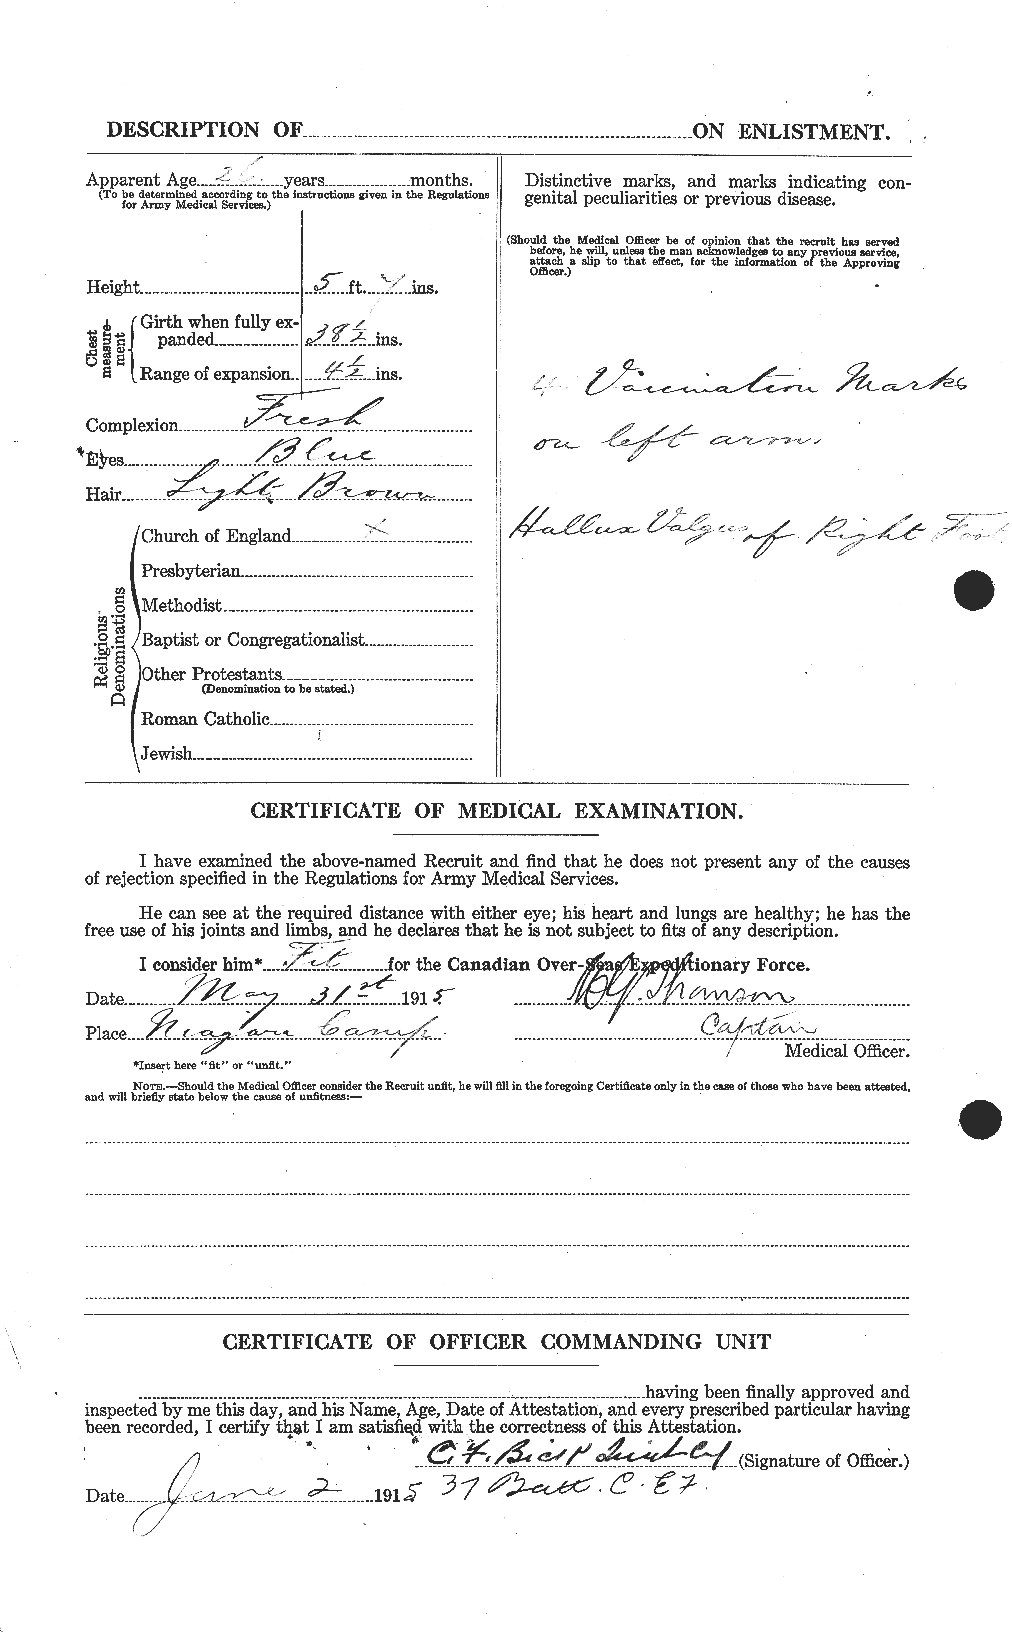 DESCRIPTION OF ON ENLISTMENT.
Apparent Age 26 years months.
(To be determined according to the instructions given in the Regulations
for Army Medical Services.)
Height 5 ft. 7 ins.
Chest measure-ment
Girth when fully ex-
panded 38 1/2 ins.
Range of expansion 4 1/2 ins.
Complexion Fresh
*Eyes Blue
Hair Light Brown
Religious Denominations
Church of England x
Presbyterian
Methodist
Baptist or Congregationalist
Other Protestants
(Denomination to be stated.)
Roman Catholic
Jewish
Distinctive marks, and marks indicating con-
genital peculiarities or previous disease.
(Should the Medical Officer be of opinion that the recruit has served
before, he will, unless the man acknowledges to any previous service,
attach a slip to that effect, for the information of the Approving
Officer.)
4 Vaccination Marks
on left arm.
Hallux Valgus of Right Foot
CERTIFICATE OF MEDICAL EXAMINATION.
I have examined the above-named Recruit and find that he does not present any of the causes
of rejection specified in the Regulations for Army Medical Services.
He can see at the required distance with either eye; his heart and lungs are healthy; he has the
free use of his joints and limbs, and he declares that he is not subject to fits of any description.
I consider him* Fit for the Canadian Over-Seas Expeditionary Force.
Date May 31st 1915 Thomson
Place Niagara Camp. Captain
Medical Officer.
*Insert here "fit" or "unfit."
NOTE.—Should the Medical Officer consider the Recruit unfit, he will fill in the foregoing Certificate only in the case of those who have been attested,
and will briefly state below the cause of unfitness:—
CERTIFICATE OF OFFICER COMMANDING UNIT
having been finally approved and
inspected by me this day, and his Name, Age, Date of Attestation, and every prescribed particular having
been recorded, I certify that I am satisfied with the correctness of this Attestation.
C. F. (Signature of Officer.)
Date June 2 1915 37 Batt. C. E F.